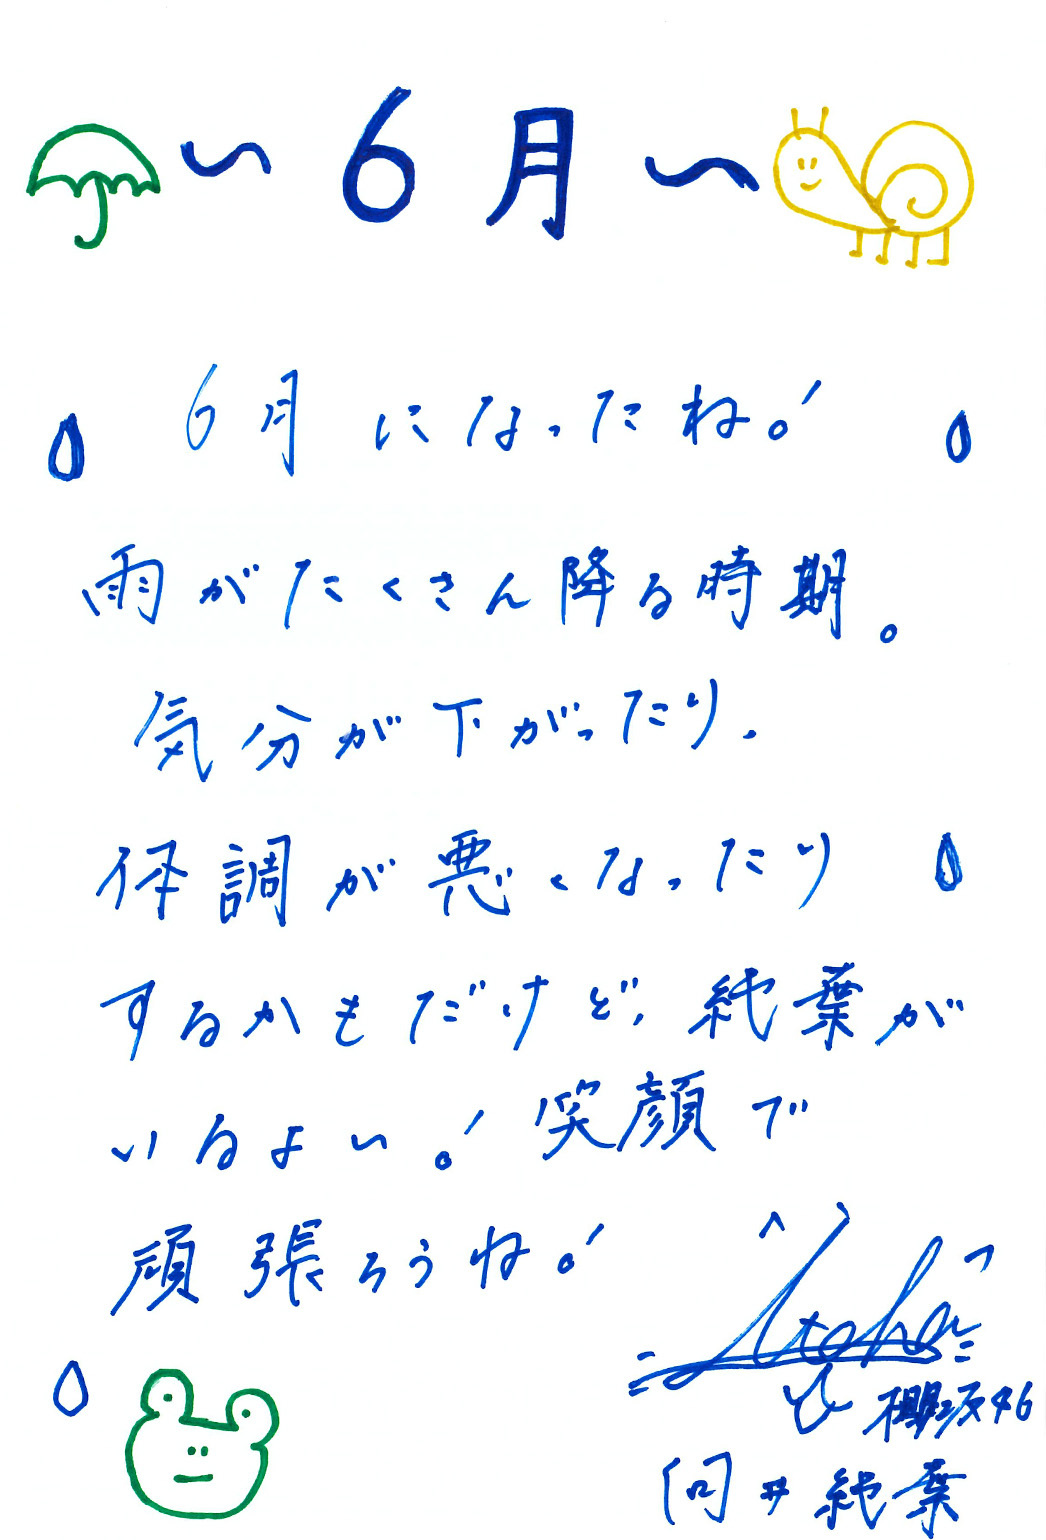 〜6月〜
6月になったね!
雨がたくさん降る時期。
気分が下がったり、
体調が悪くなったり
するかもだけど、純葉が
いるよい!笑顔で
頑張ろうね!
Itoha
櫻坂46
向井純葉